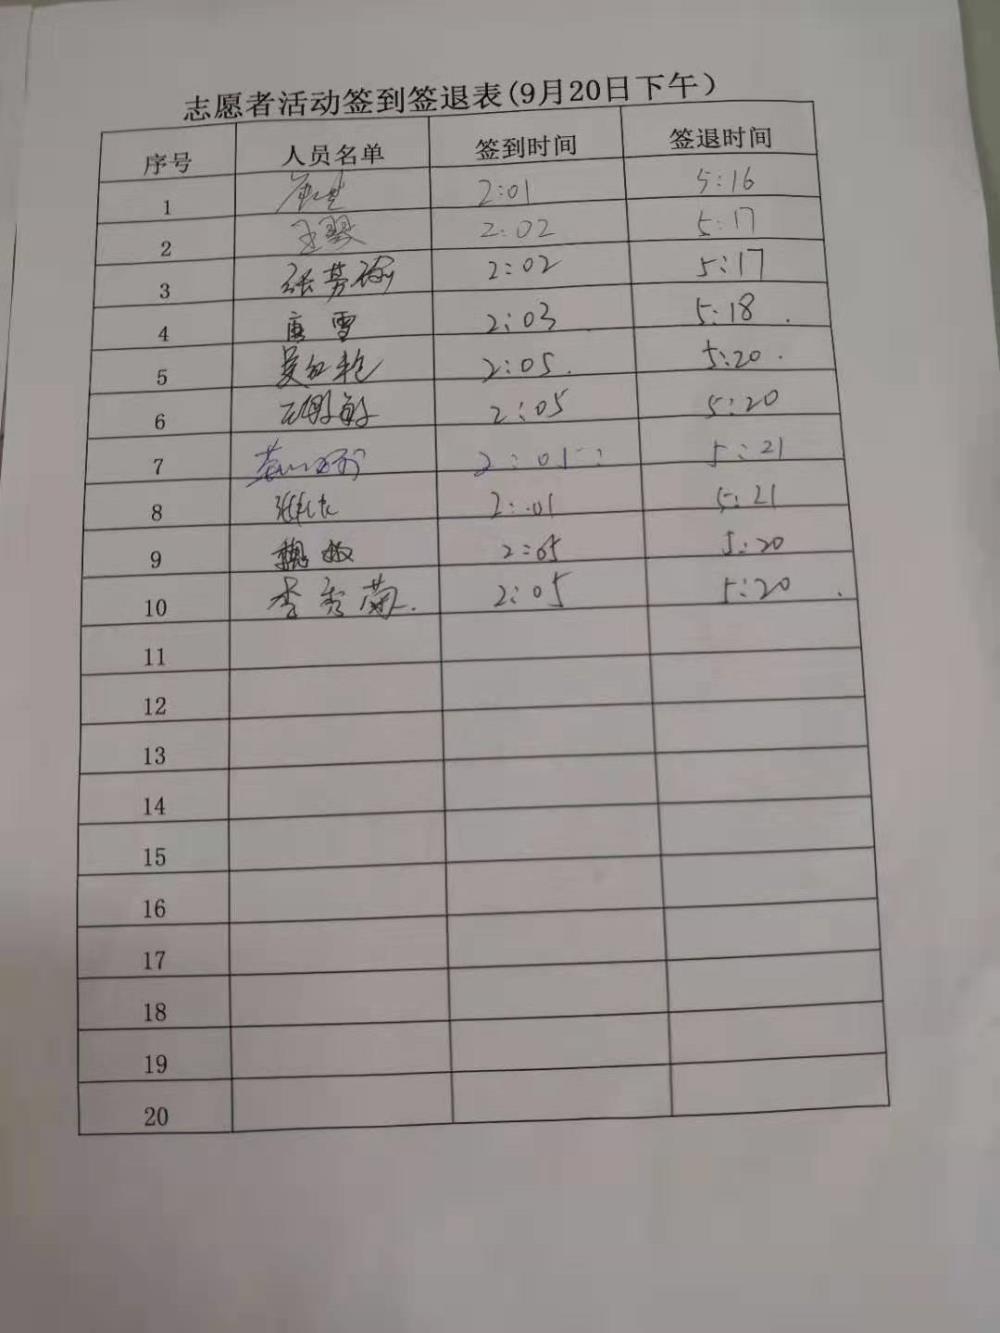 志愿者活动签到签退表(9月20日下午)
序号 人员名单 签到时间 签退时间
1 2:01 5:16
2 王翠 2:02 5:17
3 2:02 5:17
4 唐雪 2:03 5:18
5 2:05 5:20
6 2:05 5:20
7 2:01 5:21
8 2:01 5:21
9 魏敏 2:05 5:20
10 李秀菊 2:05 5:20
11
12
13
14
15
16
17
18
19
20